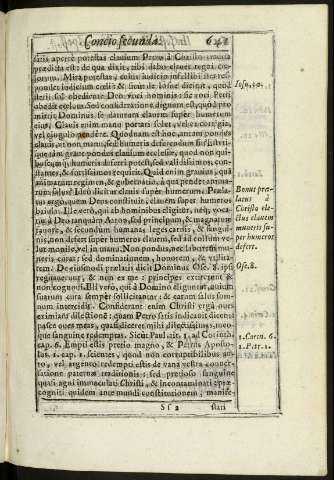 Concio secunda. 641
statis aperte potestas clavium Petro à Christo
prædicta est: de qua dixit, tibi dabo claves regni
lorum. Mira potestas, cuius iudicio infallibili res-
pondet iudicium cœli: & sicut de Iosue dicitur, quod
obediret Deo voci hominis: sic voci Petri
obedit cœlum. Sed consideratione dignum est, quòd pro-
mittit Dominus se clavem daturum super humerum
eius, Clavis enim manu portari solet, vel ex corrigia,
vel cingulo pendere. Quodnam est hoc, antem pondus
clavis, ut non manu, sed humeris deferendum sit?
quàm grave pondus clavium ecclesiæ, quod non qui-
busque humeris deferri potest, sed validissimis, con-
stantes, & fortissimos requirit. Quid enim gravius, quàm
animarum regimen, & gubernatio, à qua pendet anima-
rum salus? Ideo dicitur clavis super humerum. Præla-
tus ergo, quem Deus constituit, clavem super humeros
baiulat. Ille verò, qui ab hominibus eligitur, neque voca-
tur à Deo tanquam Aaron, sed principum, & magnatum
favore, & secundum humanas leges carnis, & sangui-
nis, non defert super humeros clavem, sed ad collum ve-
lut monile, vel in manu. Non pondus, nec labor
muneris curat: sed dominationem, honorem, &
tatem. De eiusmodi prælatis dicit Dominus Ose. 8. ipsi
regnaverunt, & non ex me: principes extiterunt, &
non cognovi. Illi verò, qui à Domino eliguntur, ovium
suarum cura semper sollicitantur: & earum salus som-
num interrumpit. Considerant enim Christi ergà oves
eximiam dilectionem: quam Petro satis indicavit dicens
pasce oves meas, quasi diceret mihi dilectissimas, meo-
que sanguine redemptas. Sicut Paul. ait. 1. ad Corinth.
cap. 6. Empti estis pretio magno, & Petrus Aposto-
lus. 1. cap. 1. scientes, quod non corruptibilibus au-
ro, vel argento redempti estis de vana vestra conver-
satione paternæ traditionis: sed pretioso sanguine
quasi agni immaculati Christi, & incontaminati præ-
cogniti quidem ante mundi constitutionem, manife-
Sf 2 stati
Iosu. 10.
Bonus præ-
latus à
Christo ele-
ctus clavem
muneris su-
per humeros
defert.
Ose. 8.
1. Corin. 6.
1. Petr. 1.